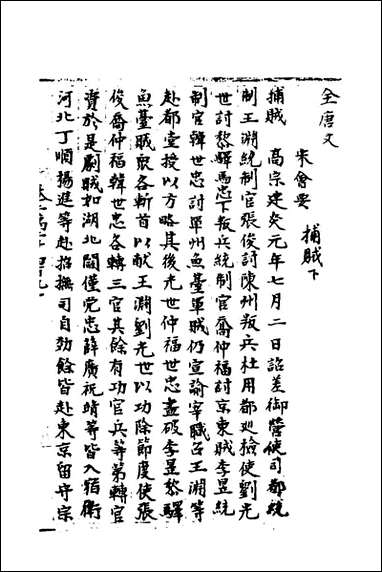 全唐文
宋會要　捕賊下
捕賊　高宗建炎元年七月二日詔差御營使司都統
制王淵統制官張俊討陳州叛兵杜用都廵檢使劉光
世討黎驛馬忠下叛兵統制官喬仲福討京東賊李昱統
制官韓世忠討單州魚臺軍賊仍宣諭宰職召王淵等
赴都堂授以方略其後光世仲福世忠盡破李昱黎驛
魚臺賊眾各斬首以献王淵劉光世以功除節度使張
俊喬仲福韓世忠各轉三官其餘有功官兵等苐轉官
資於是劇賊如湖北閻僅党忠薛廣祝靖等皆入宿衛
河北丁順揚進等赴招撫司自効餘皆赴東京留守宗